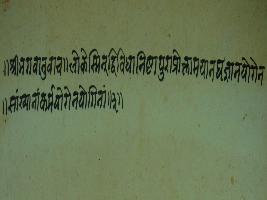 ॥श्रीभगवानुवाच॥लोकेस्मिन्द्विविधानिष्ठापुराप्रोक्तामयानघज्ञानयोगेन
सांख्यानांकर्मयोगेनयोगिनां॥३॥